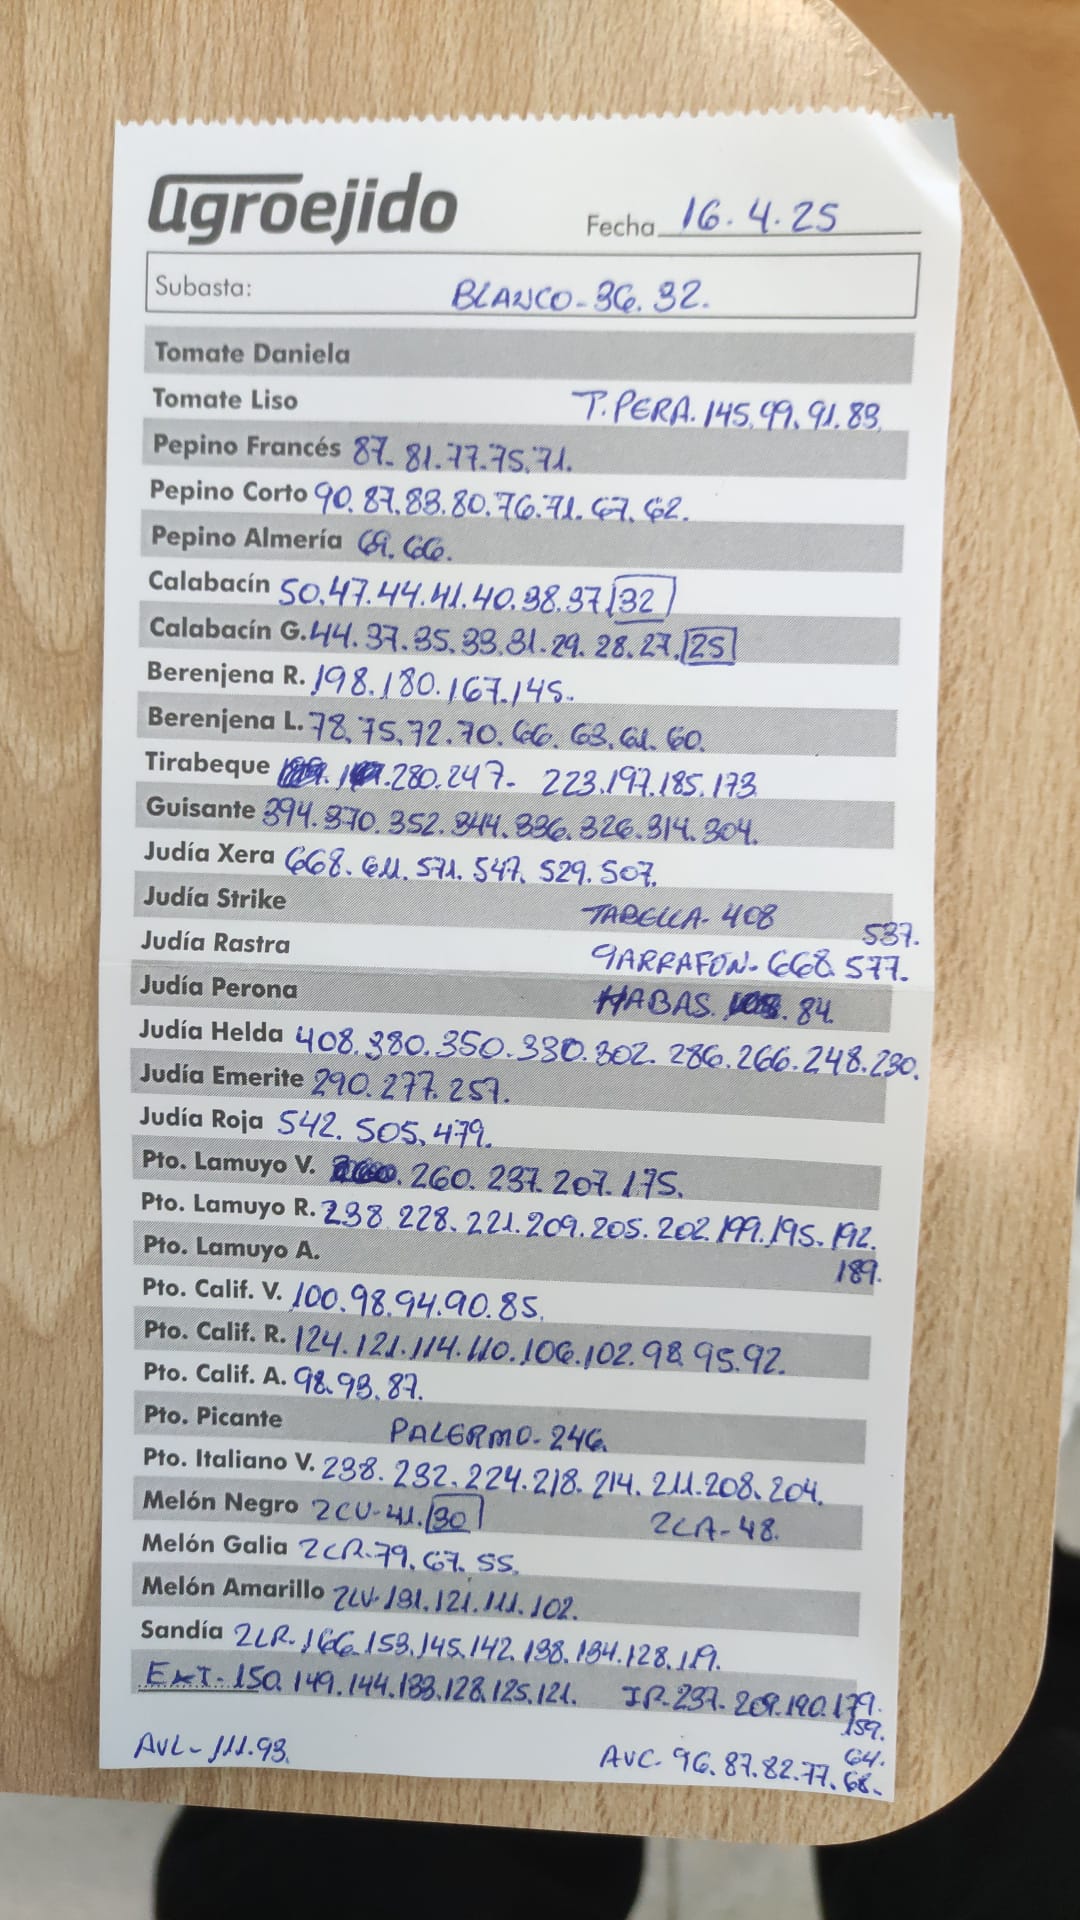 agroejido
Fecha 16.4.25
Subasta: BLANCO-36.32.
Tomate Daniela
Tomate Liso T.PERA.145.99.91.83.
Pepino Francés 87.81.77.75.71.
Pepino Corto 90.87.83.80.76.71.67.62.
Pepino Almería 69.66.
Calabacín 50.47.44.41.40.38.37 32
Calabacín G. 44.37.35.33.31.29.28.27. 25
Berenjena R. 198.180.167.145.
Berenjena L. 78.75.72.70.66.63.61.60.
Tirabeque 280.247- 223.197.185.173
Guisante 394.370.352.344.336.326.314.304.
Judía Xera 668.611.571.547.529.507.
Judía Strike TABELLA-408
537.
Judía Rastra GARRAFON-668.577.
Judía Perona HABAS. 84.
Judía Helda 408.380.350.330.302.286.266.248.230.
Judía Emerite 290.277.257.
Judía Roja 542.505.479.
Pto. Lamuyo V. 260.237.207.175.
Pto. Lamuyo R. 238.228.221.209.205.202.199.195.192.
189.
Pto. Lamuyo A.
Pto. Calif. V. 100.98.94.90.85.
Pto. Calif. R. 124.121.114.110.106.102.98.95.92.
Pto. Calif. A. 98.93.87.
Pto. Picante PALERMO-246.
Pto. Italiano V. 238.232.224.218.214.211.208.204.
Melón Negro 2CV-41. 30 2CA-48.
Melón Galia 2CR-79.67.55.
Melón Amarillo 2LV-131.121.111.102.
Sandía 2LR-166.153.145.142.138.134.128.119.
EXT-150.149.144.133.128.125.121. IR-237.209.190.179.
159.
AVL-111.93. AVC-96.87.82.77.68.
64.